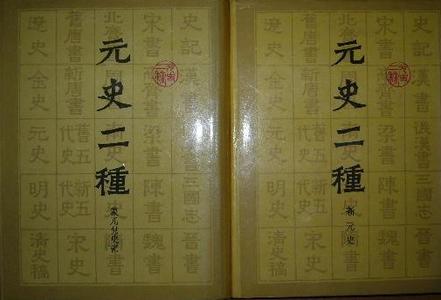 元史二種
蒙兀兒史記
史記
漢書
三國志
晉書
宋書
梁書
陳書
魏書
舊唐書
新唐書
舊五代史
新五代史
宋史
遼史
金史
元史
明史
清史稿
元史二種
新元史
史記
漢書
後漢書
三國志
晉書
宋書
梁書
陳書
魏書
舊唐書
新唐書
舊五代史
新五代史
宋史
遼史
金史
元史
明史
清史稿